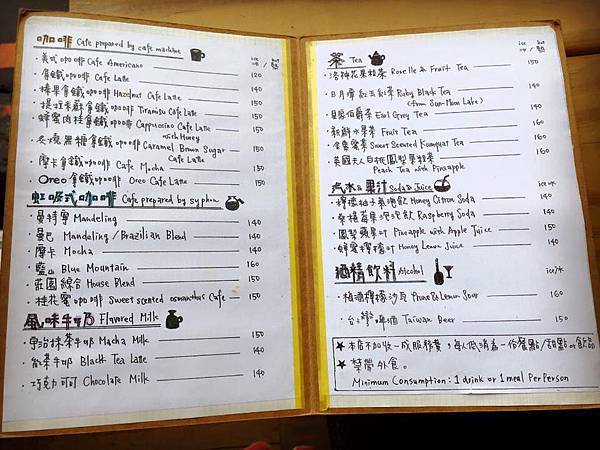 咖啡 Cafe prepared by cafe machine ice 冰 / hot 熱
美式咖啡 Cafe Americano 120
拿鐵咖啡 Cafe Latte 120
榛果拿鐵咖啡 Hazelnut Cafe Latte 140
提拉米蘇拿鐵咖啡 Tiramisu Cafe Latte 140
蜂蜜肉桂拿鐵咖啡 Cappuccino Cafe Latte with Honey 140
炭燒黑糖拿鐵咖啡 Caramel Brown Sugar Cafe Latte 150
摩卡拿鐵咖啡 Cafe Mocha 150
Oreo 拿鐵咖啡 Oreo Cafe Latte 150
虹吸式咖啡 Cafe prepared by syphon
曼特寧 Mandeling 140
曼巴 Mandaling / Brazilian Blend 140
摩卡 Mocha 140
藍山 Blue Mountain 160
莊園綜合 House Blend 150
桂花蜜咖啡 Sweet scented osmanthus Cafe 150
風味牛奶 Flavored Milk
宇治抹茶牛奶 Macha Milk 150
紅茶牛奶 Black Tea Latte 140
巧克力可可 Chocolate Milk 140
茶 Tea ice 冰 / hot 熱
洛神花果粒茶 Roselle & Fruit Tea 150
日月潭紅玉紅茶 Ruby Black Tea (from Sun-Moon Lake) 140
伯爵茶 Earl Grey Tea 140
新鮮水果茶 Fruit Tea 160
金桔蜜茶 Sweet Scented Kumquat Tea 160
英國夫人白桃鳳梨果粒茶 Peach Tea with Pineapple 160
汽水&果汁 Soda & Juice ice 冰
檸檬柚子氣泡飲 Honey Citron Soda 140
桑椹莓果泡泡飲 Raspberry Soda 140
鳳梨蘋果汁 Pineapple with Apple Juice 150
蜂蜜檸檬汁 Honey Lemon Juice 140
酒精飲料 Alcohol ice 冰
梅酒檸檬沙瓦 Plume & Lemon Sour 160
台灣啤酒 Taiwan Beer 150
★ 本店不加收一成服務費，每人低消為一份餐點/甜點 or 飲品
★ 禁帶外食。
Minimum Consumption : 1 drink or 1 meal Per Person